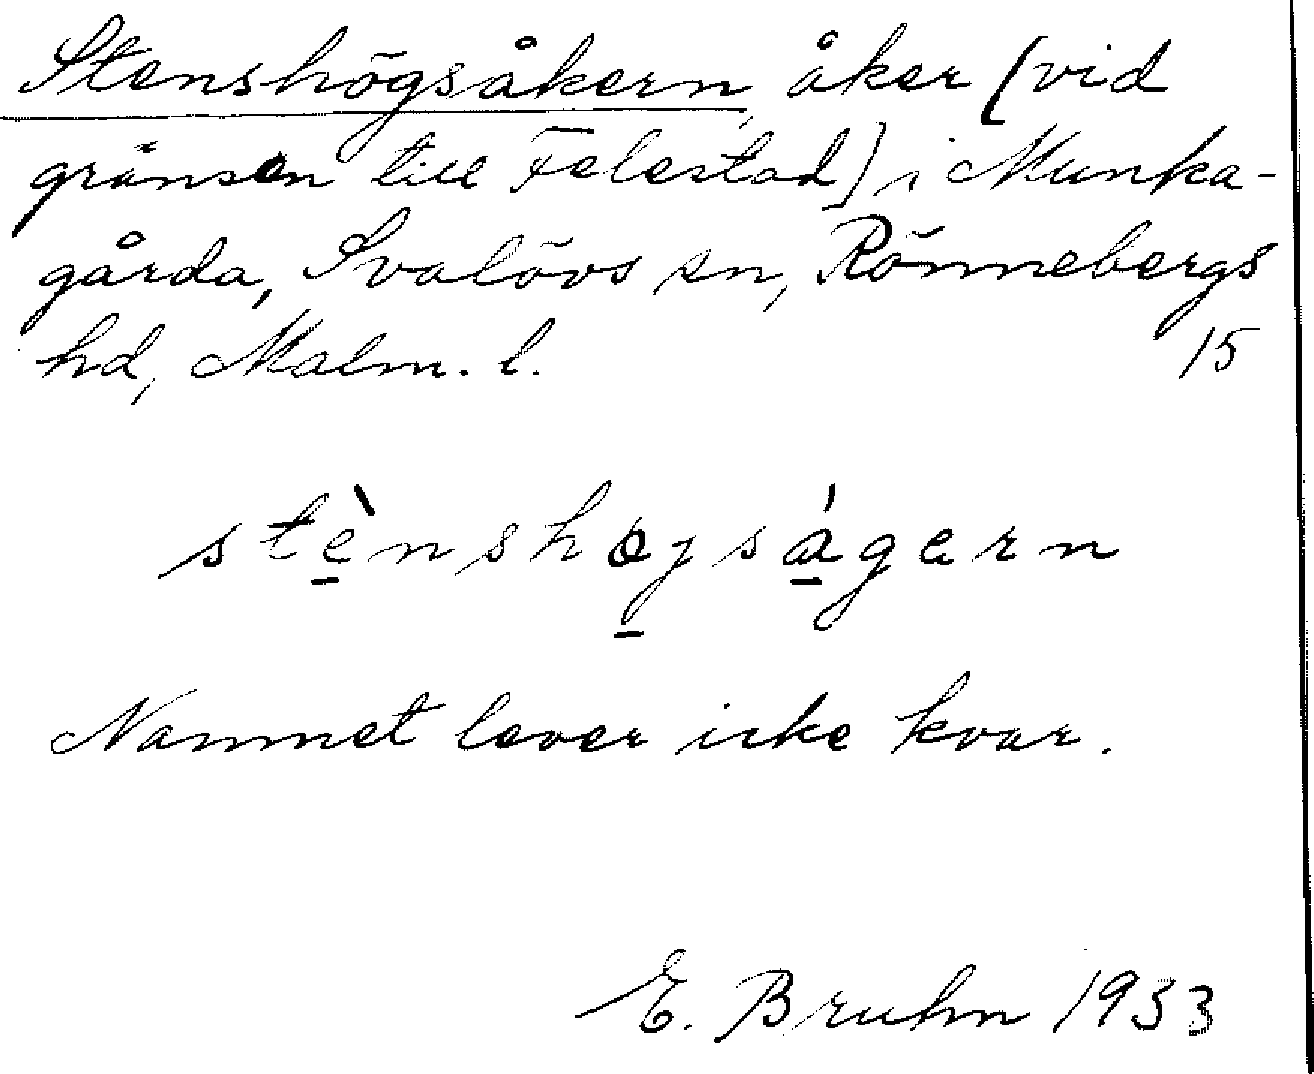 Stenshögsåkern, åker (vid
gränsen till Felestad) i Munka-
gårda, Svalövs sn, Rönnebergs
hd, Malm. l. 15
stè̠nshøj̠sá̠gərn
Namnet lever icke kvar.
E. Bruhn 1933